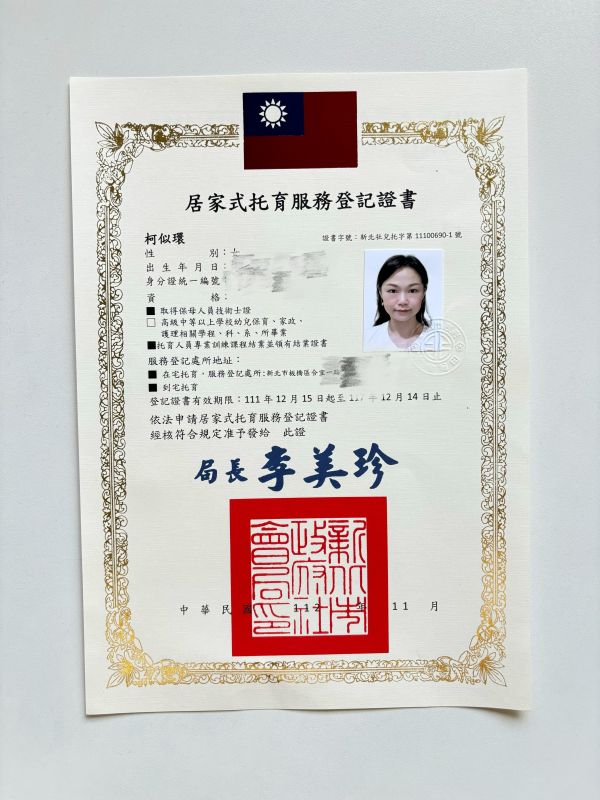 居家式托育服務登記證書
證書字號：新北社兒托字第11100690-1號
柯似環
性別：
出生年月日：
身分證統一編號：
資格：
■ 取得保母人員技術士證
□ 高級中等以上學校幼兒保育、家政、
護理相關學程、科、系、所畢業
■托育人員專業訓練課程結業並領有結業證書
服務登記處所地址：
■ 在宅托育，服務登記處所：新北市板橋區合宜一路
■ 到宅托育
登記證書有效期限：111年12月15日起至117年12月14日止
依法申請居家式托育服務登記證書
經核符合規定准予發給 此證
局長 李美珍
新北市政府社會局印
中華民國 112 年 11 月